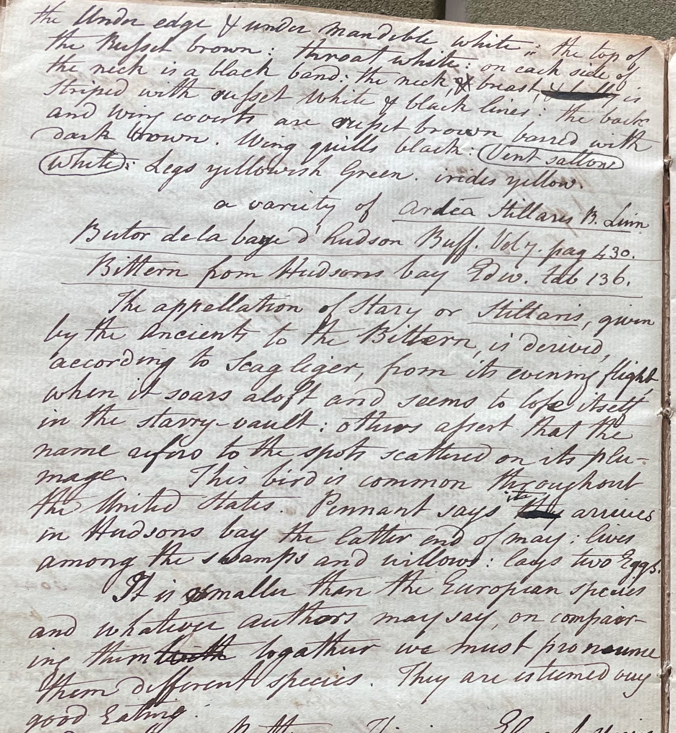 the Under edge & under mandible white: the top of
the Russet brown: throat white: on each side of
the neck is a black band: the neck & breast, is
striped with russet white & black lines: the back
and wing coverts are russet brown barred with
dark brown. Wing quills black: Vent sallow
White: Legs yellowish Green. irides yellow.
a variety of Ardea Stillaris B. Linn
Butor de la baye d'hudson Buff. Vol 7. pag 430.
Bittern from Hudsons bay Edw. tab 136.
The appellation of Stary or Stillaris, given
by the ancients to the Bittern, is derived,
according to Scagliger, from its evening flight
when it soars aloft and seems to lose itself
in the starry-vault: others assert that the
name refers to the spots scattered on its plu-
mage. This bird is common throughout
the United States. Pennant says it arrives
in Hudsons bay the latter end of may: lives
among the swamps and willows: lays two Eggs.
It is smaller than the European species
and whatever authors may say, on compair-
ing them togather we must pronounce
them different species. They are esteemed very
good Eating.